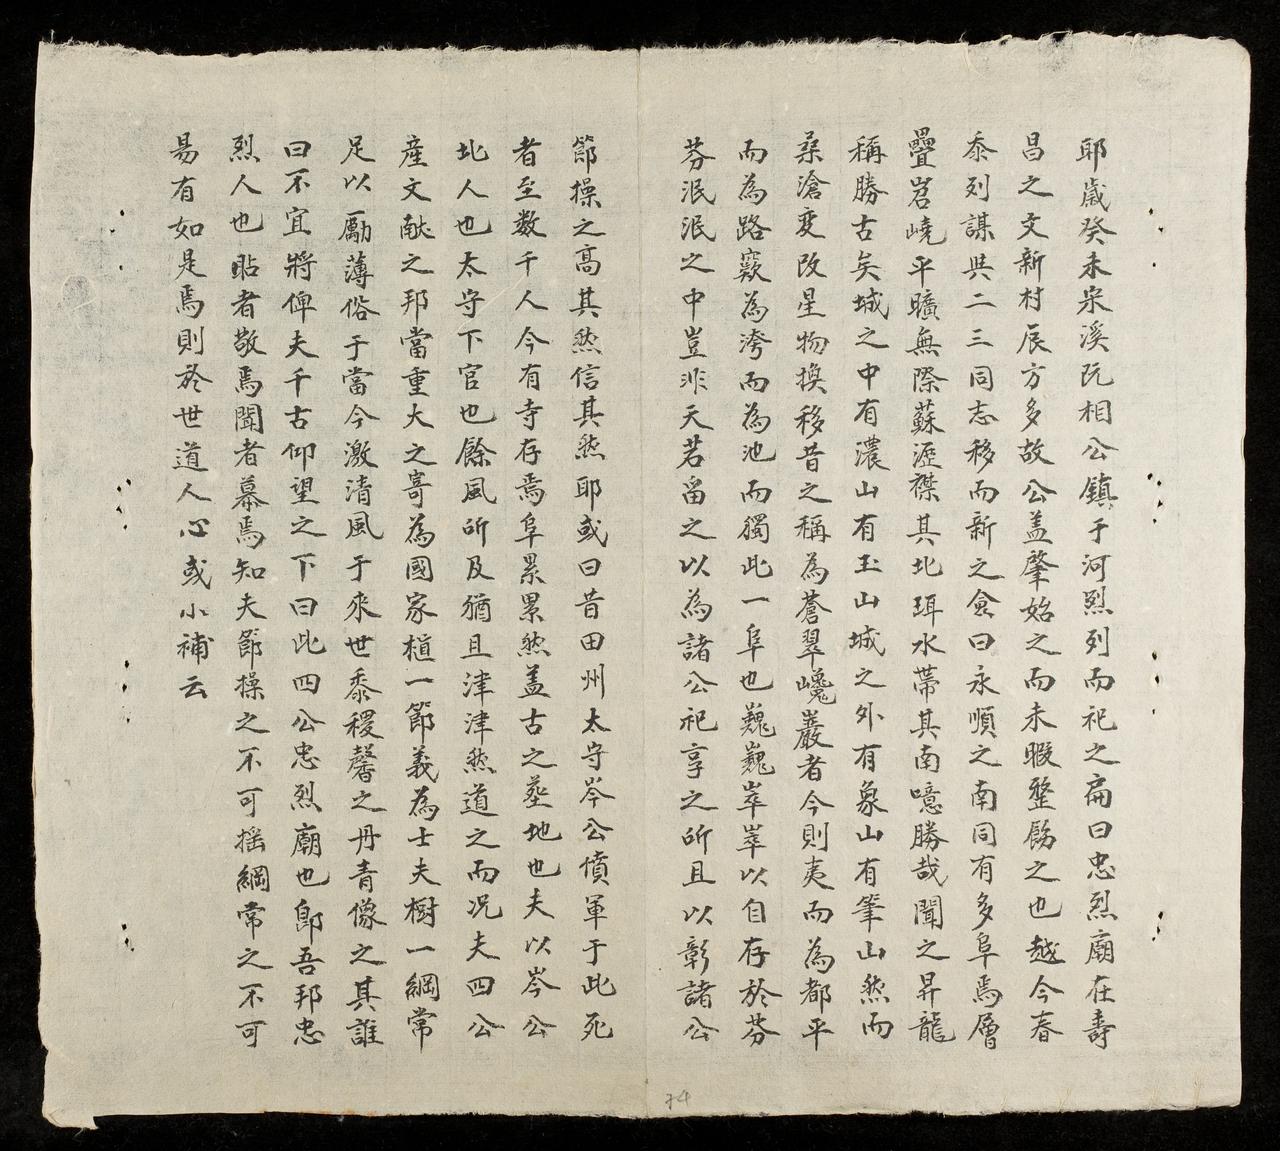 耶歲癸未宋溪阮相公鎮于河烈列而祀之扁曰忠烈廟在壽
昌之文新村辰方多故公盖肇始之而未暇整餝之也越今春
忝列謀與二三同志移而新之僉曰永順之南同有多阜焉層
疊岧嶢平曠無際蘇瀝襟其北珥水帶其南噫勝哉聞之昇龍
稱勝古矣城之中有濃山有玉山城之外有象山有筆山然而
桑滄变改星物換移昔之稱為蒼翠巉巖者今則夷而為都平
而為路窾為洿而為池而獨此一阜也巍巍崒崒以自存於芬
芬泯泯之中豈非天若畱之以為諸公祀享之所且以彰諸公
節操之高其然信其然耶或曰昔田州太守岑公憤軍于此死
者至数千人今有寺存焉阜累累然盖古之塟地也夫以岑公
北人也太守下官也餘風所及猶且津津然道之而况夫四公
産文献之邦當重大之寄為國家植一節義為士夫樹一綱常
足以勵薄俗于當今激清風于來世黍稷馨之丹青像之其誰
曰不宜將俾夫千古仰望之下曰此四公忠烈廟也卽吾邦忠
烈人也貼者敬焉聞者慕焉知夫節操之不可揺綱常之不可
易有如是焉則於世道人心或小補云
74